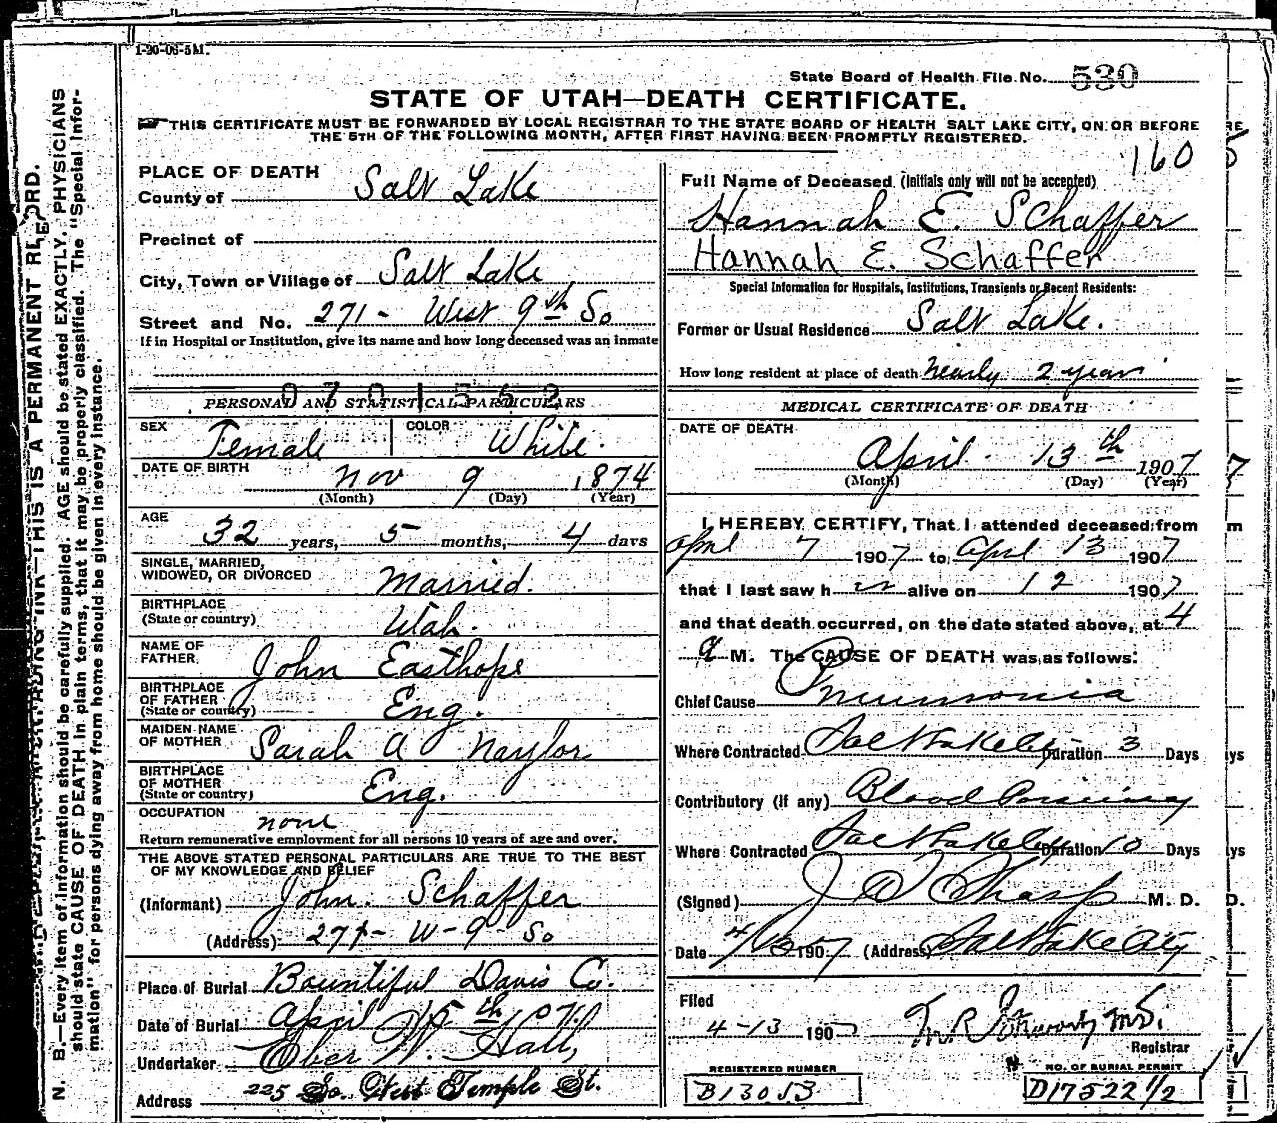 1-20-06-5M.
State Board of Health File No. 530
STATE OF UTAH—DEATH CERTIFICATE.
THIS CERTIFICATE MUST BE FORWARDED BY LOCAL REGISTRAR TO THE STATE BOARD OF HEALTH SALT LAKE CITY, ON OR BEFORE
THE 5TH OF THE FOLLOWING MONTH, AFTER FIRST HAVING BEEN PROMPTLY REGISTERED.
160
PLACE OF DEATH
County of Salt Lake
Precinct of
City, Town or Village of Salt Lake
Street and No. 271 - West 9th So
If in Hospital or Institution, give its name and how long deceased was an inmate
0701552
PERSONAL AND STATISTICAL PARTICULARS
SEX Female COLOR White.
DATE OF BIRTH Nov 9 1874
(Month) (Day) (Year)
AGE 32 years, 5 months, 4 days
SINGLE, MARRIED,
WIDOWED, OR DIVORCED Married.
BIRTHPLACE
(State or country) Utah.
NAME OF
FATHER John Easthope
BIRTHPLACE
OF FATHER
(State or country) Eng.
MAIDEN NAME
OF MOTHER Sarah A Naylor
BIRTHPLACE
OF MOTHER
(State or country) Eng.
OCCUPATION none
Return remunerative employment for all persons 10 years of age and over.
THE ABOVE STATED PERSONAL PARTICULARS ARE TRUE TO THE BEST
OF MY KNOWLEDGE AND BELIEF
(Informant) John. Schaffer
(Address) 271- W-9- So
Place of Burial Bountiful Davis Co.
Date of Burial April 15th 1907
Undertaker Eber W. Hall,
Address 225 So. West Temple St.
Full Name of Deceased (Initials only will not be accepted)
Hannah E. Schaffer
Hannah E. Schaffer
Special Information for Hospitals, Institutions, Transients or Recent Residents:
Former or Usual Residence Salt Lake.
How long resident at place of death Nearly 2 year
MEDICAL CERTIFICATE OF DEATH
DATE OF DEATH
April 13th 1907
(Month) (Day) (Year)
I HEREBY CERTIFY, That I attended deceased from
April 7 1907 to April 13 1907
that I last saw h alive on 12 1907
and that death occurred, on the date stated above, at 4
a M. The CAUSE OF DEATH was as follows:
Chief Cause Pneumonia
Where Contracted Salt Lake City Duration 3 Days
Contributory (If any) Blood Poisoning
Where Contracted Salt Lake City Duration 10 Days
(Signed) M. D.
Date 1907 (Address) Salt Lake City
Filed
4-13 1907
Registrar
REGISTERED NUMBER
B13053
NO. OF BURIAL PERMIT
D17522 1/2
N. B.—Every item of information should be carefully supplied. AGE should be stated EXACTLY. PHYSICIANS
should state CAUSE OF DEATH in plain terms, that it may be properly classified. The "Special Infor-
mation" for persons dying away from home should be given in every instance.
THIS IS A PERMANENT RECORD.